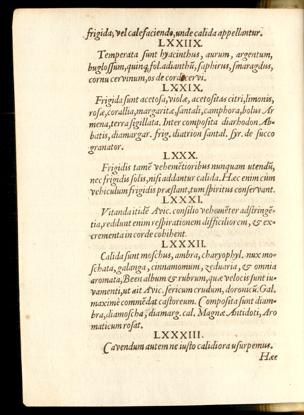 frigida, vel calefaciendo, unde calida appellantur.
LXXIIX.
Temperata sunt hyacinthus, aurum, argentum,
buglossum, quinq; fol. adianthũ, saphirus, smaragdus,
cornu cervinum, os de corde cervi.
LXXIX.
Frigida sunt acetosa, violæ, acetositas citri, limonis,
rosæ, corallia, margaritæ, santali, camphora, bolus Ar-
mena, terra sigillata. Inter composita diarhodon Ab-
batis, diamargar. frig. diatrion santal. syr. de succo
granator.
LXXX.
Frigidis tamẽ vehemẽtioribus nunquam utendũ,
nec frigidis solis, nisi addantur calida. Hæc enim cùm
vehiculum frigidis præstant, tum spiritus conservant.
LXXXI.
Vitanda itidẽ Avic. consilio vehemẽter adstringẽ-
tia, reddunt enim respirationem difficiliorem, & ex-
crementa in corde cohibent.
LXXXII.
Calida sunt moschus, ambra, charyophyl. nux mo-
schata, galanga, cinnamomum, zeduaria, & omnia
aromata, Been album & rubrum, quæ velocis sunt iu-
vamenti, ut ait Avic. sericum crudum, doronicũ. Gal.
maximè commẽdat castoreum. Composita sunt diam-
bra, diamoscha, diamarg. cal. Magnæ Antidoti, Aro
maticum rosat.
LXXXIII.
Cavendum autem ne iusto calidiora usurpemus.
Hæc